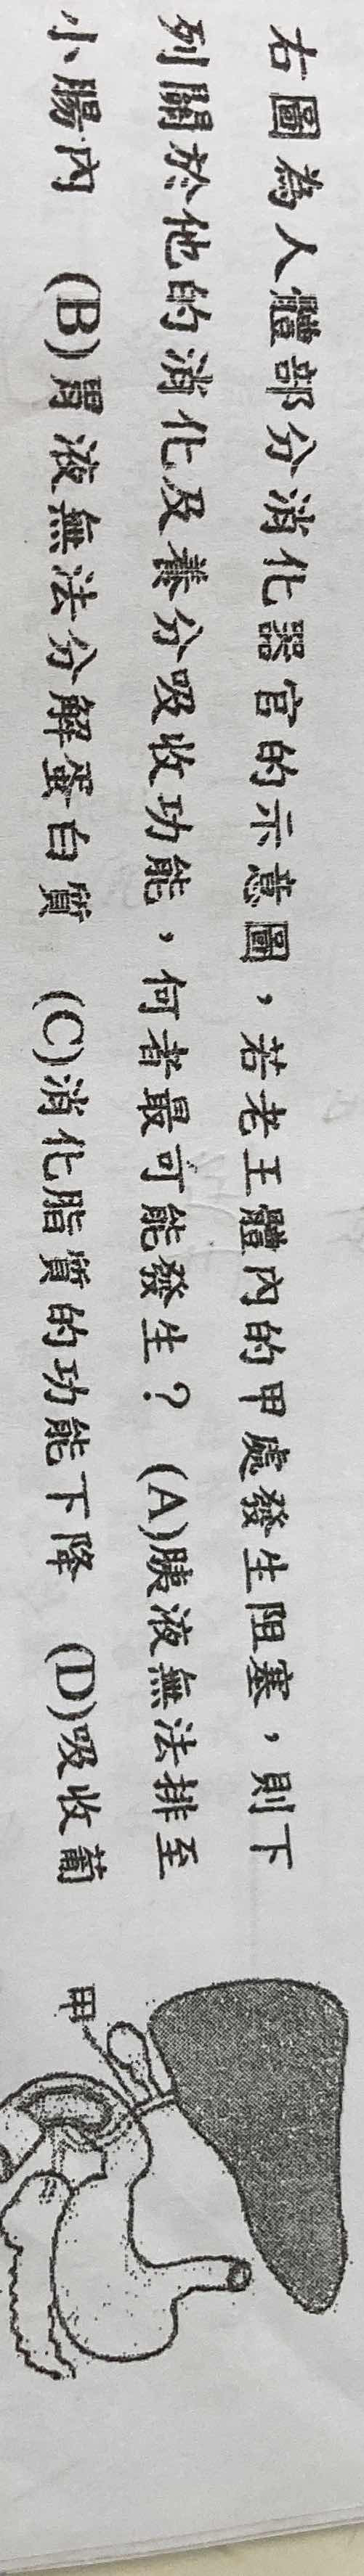 右圖為人體部分消化器官的示意圖，若老王體內的甲處發生阻塞，則下
列關於他的消化及養分吸收功能，何者最可能發生？ (A)胰液無法排至
小腸內 (B)胃液無法分解蛋白質 (C)消化脂質的功能下降 (D)吸收葡
甲